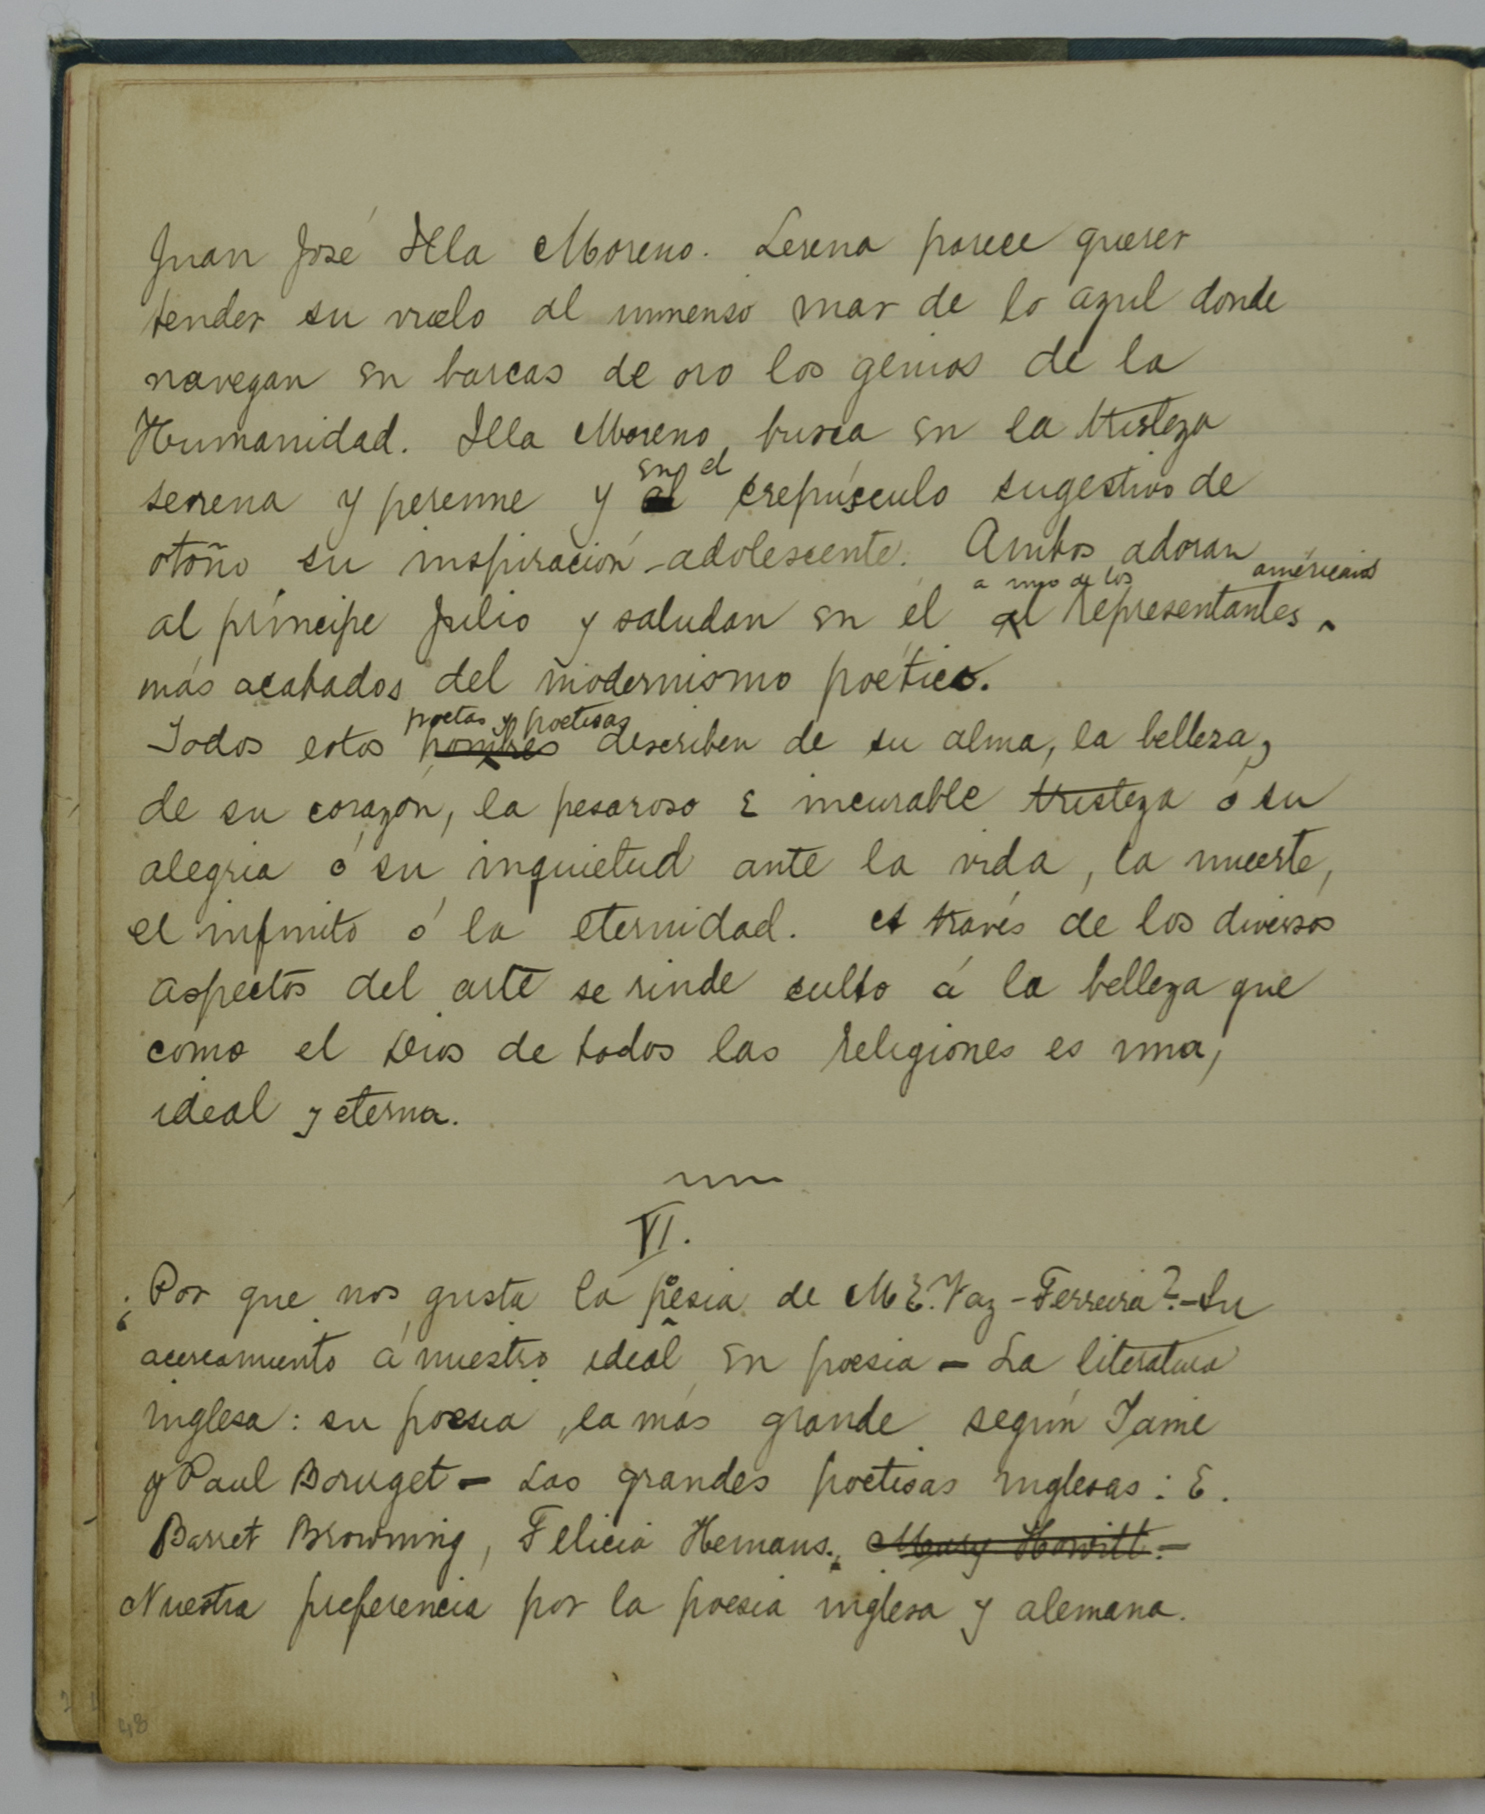 Juan José Illa Moreno. Lerena parece querer
tender su vuelo al inmenso mar de lo azul donde
navegan en barcas de oro los genios de la
Humanidad. Illa Moreno busca en la tristeza
en el
serena y perenne y al crepúsculo sugestivo de
otoño su inspiración adolescente. Ambos adoran
a uno de los americanos
al príncipe Julio y saludan en él al representantes
más acabados del modernismo poético.
poetas y poetisas
Todos estos hombres describen de su alma, la belleza,
de su corazón, la pesaroso é incurable tristeza ó su
alegria ó su inquietud ante la vida, la muerte,
el infinito ó la eternidad. A través de los diversos
aspectos del arte se rinde culto á la belleza que
como el Dios de todas las religiones es una,
ideal y eterna.
VI.
¿Por que nos gusta la poesia de M E. Vaz-Ferreira?-Su
acercamiento á nuestro ideal en poesia - La literatura
inglesa: su poesia, la más grande según Taine
y Paul Boruget - Las grandes poetisas inglesas: E.
Barret Browning, Felicia Hemans., Mary Howitt.-
Nuestra preferencia por la poesia inglesa y alemana.
48